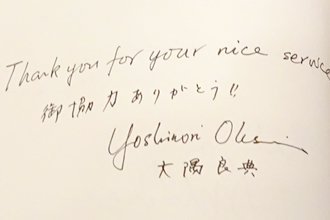 Thank you for your nice service
御協力ありがとう!!
Yoshinori Ohsumi
大隅良典